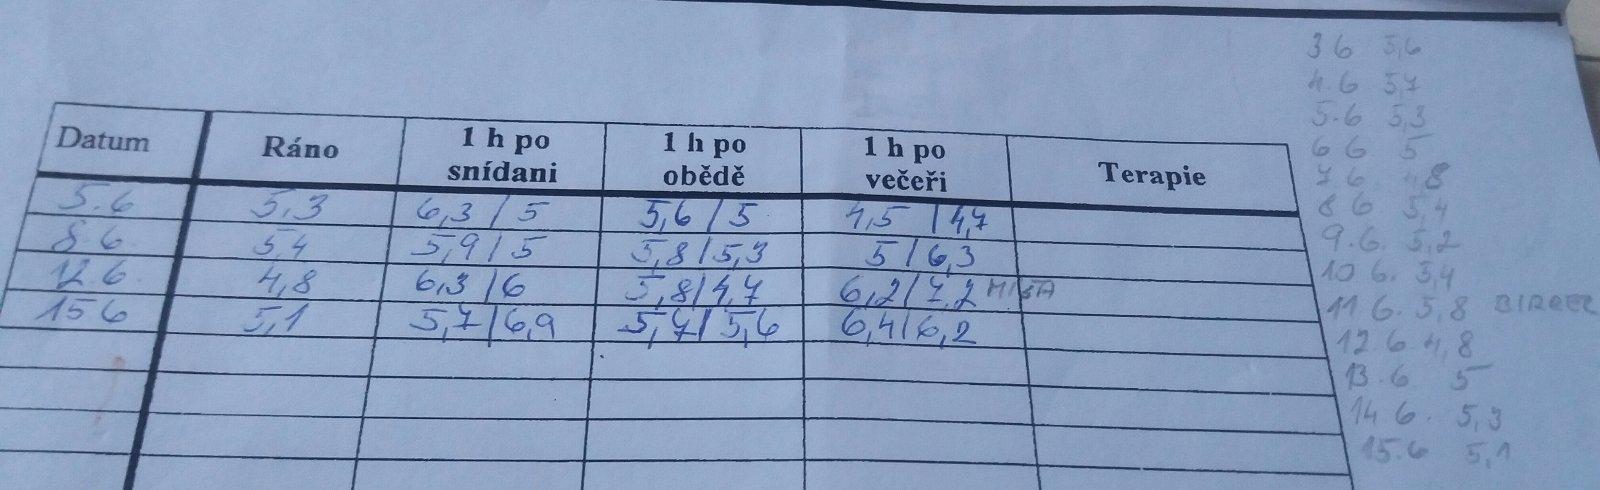 Datum Ráno 1 h po snídani 1 h po obědě 1 h po večeři Terapie
5.6 5,3 6,3 / 5 5,6 / 5 4,5 / 4,7
8.6 5,4 5,9 / 5 5,8 / 5,3 5 / 6,3
12.6. 4,8 6,3 / 6 5,8 / 4,7 6,2 / 7,2
15 6 5,1 5,7 / 6,9 5,7 / 5,6 6,4 / 6,2
3 6 5,6
4.6 5,7
5.6 5,3
6 6 5
7.6 4,8
8 6 5,4
9.6. 5,2
10 6. 5,4
11.6. 5,8 BIRREL
12.6 4,8
13.6 5
14 6. 5,3
15.6 5,1